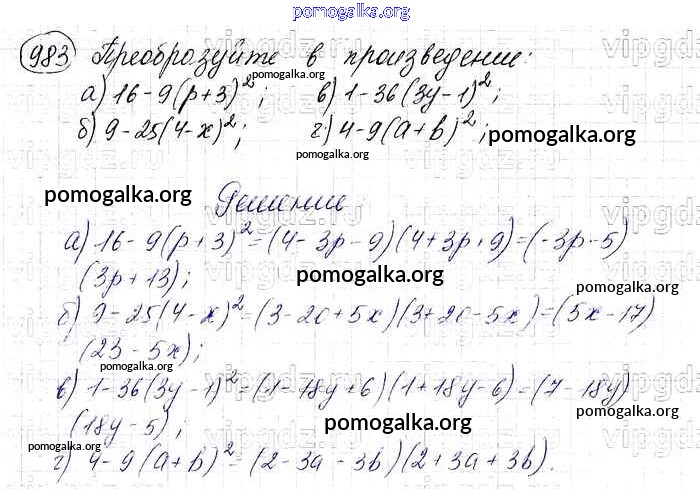 pomogalka.org
983 Преобразуйте в произведение:
pomogalka.org
а) 16-9(p+3)²; в) 1-36(3y-1)²;
б) 9-25(4-x)²; г) 4-9(a+b)²;
pomogalka.org
pomogalka.org
pomogalka.org
Решение
vipgdz.ru
а) 16-9(p+3)²=(4-3p-9)(4+3p+9)=(-3p-5)
(3p+13);
pomogalka.org
pomogalka.org
б) 9-25(4-x)²=(3-20+5x)(3+20-5x)=(5x-17)
(23-5x);
pomogalka.org
pomogalka.org
в) 1-36(3y-1)²=(1-18y+6)(1+18y-6)=(7-18y)
(18y-5);
pomogalka.org
pomogalka.org
pomogalka.org
г) 4-9(a+b)²=(2-3a-3b)(2+3a+3b).